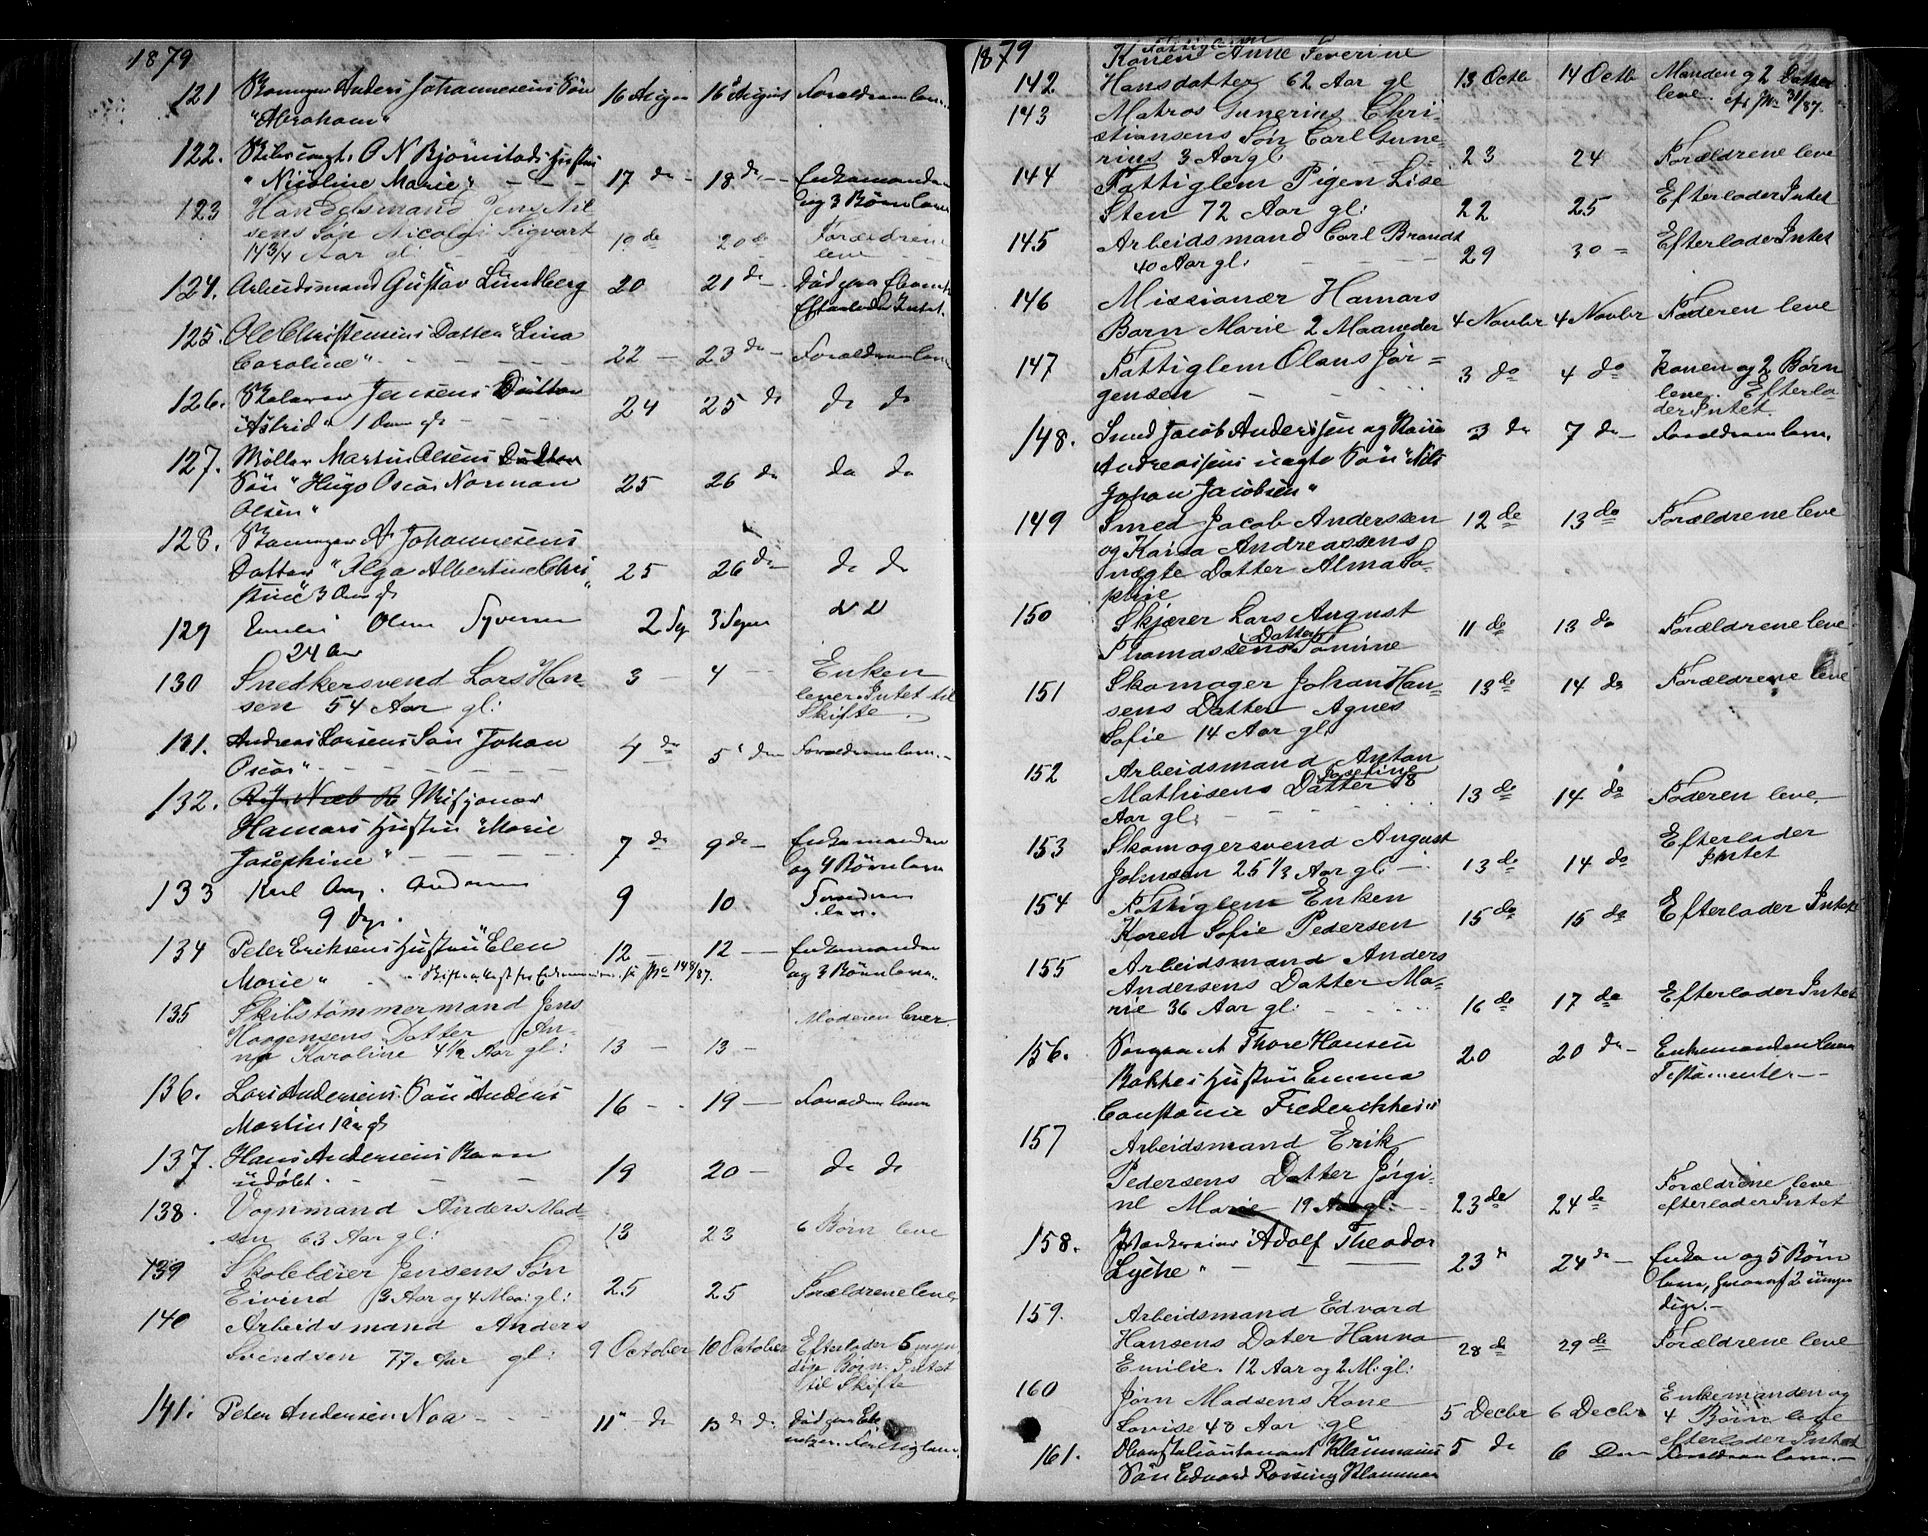 1879
121 Anders Johannesens Søn 16 August 16 August Forældrene leve
"Abraham"
122. O N Bjørnstads Hustru
"Nicoline Marie" 17 do 18 do Enkemanden
og 3 Børn leve
123 Handelsmand Jens Nil
sens Søn Nicolai Sigvart 19 do 20 do Forældrene
14 3/4 Aar gl: leve
124. Arbeidsmand Gustav Lundberg 20 21 do Død paa
Efterlader Intet.
125. Ole Christensens Datter "Lina
Caroline" 22 23 do Forældrene leve
126. Jensens Datter
"Astrid" 1 24 25 do do do
127. Møller Martin Olsens Datter
Søn "Hugo Oscar Norman 25 26 do do do
Olsen"
128. A Johannesens
Datter "Olga Albertine Chri
stine" 3 Aar gl 25 26 do do do
129 Olsen Syversen 2 3
24 Aar
130 Snedkersvend Lars Han- 3 4 Enken
sen 54 Aar gl: lever. Intet til
Skifte
131. Andreas Larsens Søn "Johan 4 do 5 do Forældrene leve.
Oscar"
132. Misjonær
Hamars Hustru "Marie
Josephine" 7 do 9 do Enkemanden
og 4 Børn leve
133 Karl Aug. Andersen 9 10 Forældrene
9 Dage leve.
134 Peter Eriksens Hustru "Elen 12 12 Enkemanden
Marie" og 3 Børn leve.
135 Skibstømmermand Jens
Haagensens Datter An-
na Karoline 4 1/2 Aar gl: 13 13 Moderen lever
136. Lars Andersens Søn "Anders
Martin 1 Aar gl 16 19 Forældrene leve
137. Hans Andersens Barn
udøbt. 19 20 do do
138. Vognmand Anders Mad-
sen 63 Aar gl: 13 23 6 Børn leve
139 Skolelærer Jensens Søn
Eivind 3 Aar og 4 Maa: gl: 25 25 Forældrene leve
140 Arbeidsmand Anders
Svendsen 77 Aar gl: 9 October 10 October Efterlader 5 myn
dige Børn. Intet
til Skifte
141. Peter Andersen Noa 11 do 13 do do
1879
Fattiglem
Konen Anne Severine
142 Hansdatter 62 Aar gl 13 Octb 14 Octb Manden og 2 Døttre
leve.
143 Matros Gunerius Chri-
stiansens Søn Carl Gune-
rius 3 Aar gl. 23 24 Forældrene leve
144 Fattiglem Pigen Lise
Sten 72 Aar gl: 22 25 Efterlader Intet
145 Arbeidsmand Carl Brandt
40 Aar gl: 29 30 Efterlader Intet
146 Missionær Hamars
Barn Marie 2 Maaneder 4 Novbr 4 Novbr Faderen leve
147 Fattiglem Olaus Jør=
gensen 3 do 4 do Konen og 2 Børn
leve. Efterla-
der Intet.
148. Smed Jacob Anderssen og Kaisa 3 do 7 do Forældrene leve.
Andreassens uægte Søn "Nils
Johan Jacobsen"
149 Smed Jacob Anderssen 12 do 13 do Forældrene leve
og Kaisa Andreassens
uægte Datter Alma So-
phie
150 Skjærer Lars August
Thomassens Datter Tomine 11 do 13 do Forældrene leve
151 Skomager Johan Han= 13 do 14 do Forældrene leve
sens Datter Agnes
Sofie 14 Aar gl.
152 Arbeidsmand Anton
Mathisens Datter Josefine 8 13 do 14 do Faderen leve.
Aar gl.
153 Skomagersvend August
Johnsen 25 1/3 Aar gl. 13 do 14 do Efterlader
Intet
154 Fattiglem Enken
Karen Sofie Pedersen 15 do 15 do Efterlader Intet
155 Arbeidsmand Anders
Andersens Datter Ma=
rie 36 Aar gl. 16 do 17 do Efterlader Intet
156. Thore Hansen 20 20 do Enkemanden leve
Bakkes Hustru Emma Testamenter
Constance Frederikke
157 Arbeidsmand Erik
Pedersens Datter Jørgi-
ne Marie 19 Aar gl: 23 do 24 do Forældrene leve
efterlader Intet
158. Adolf Theodor
Lyche" 23 do 24 do Enken og 5 Børn
leve, hvoraf 2 umyn
dige.
159. Arbeidsmand Edvard
Hansens Dater Hanna
Emilie. 12 Aar og 2 M: gl: 28 do 29 do Forældrene leve
160 Jørn Madsens Kone
Lovise 48 Aar gl 5 Decbr 6 Decbr Enkemanden og
4 Børn leve
efterlader Intet
161. 5 do 6 Forældrene leve.
Søn Edvard Rossing